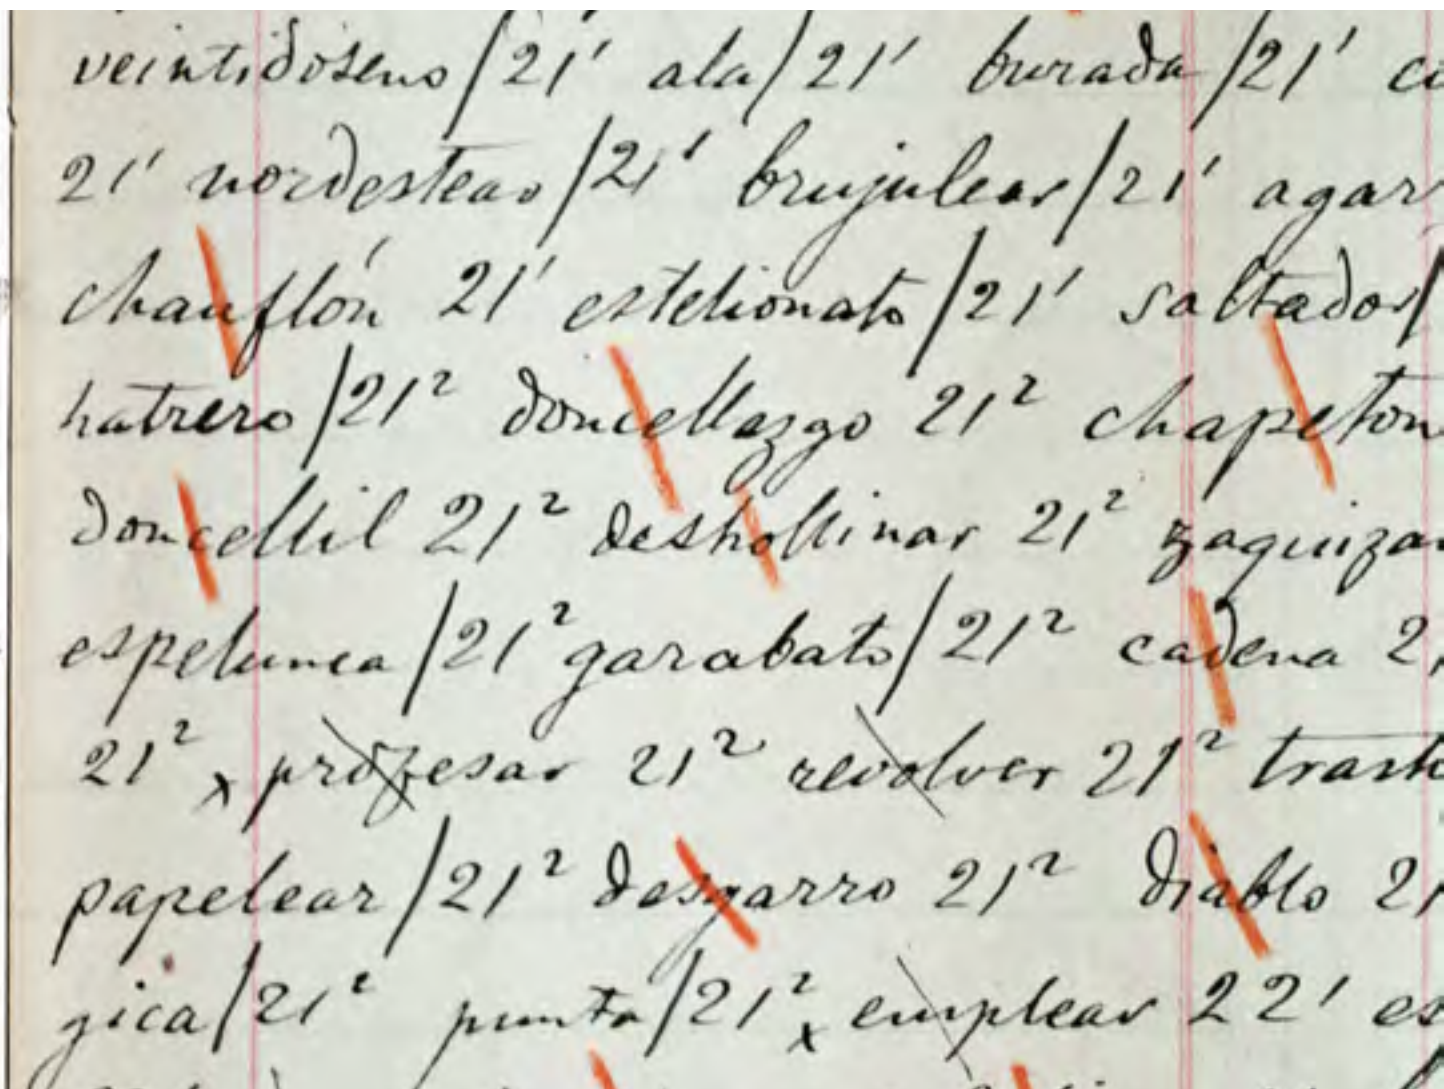 veintidoseno / 21' ala / 21' burada / 21'
21' nordestear / 21' brujulear / 21' agar
chanflón 21' estelionato / 21' saltador /
hatrero / 21² doncellazgo 21² chapeton
doncellil 21² deshollinar 21² zaquizam
espelunca / 21² garabato / 21² cadena 2
21² x profesar 21² revolver 21² trast
papelear / 21² desgarro 21² diablo 21
gica / 21² punto / 21² x emplear 22' es